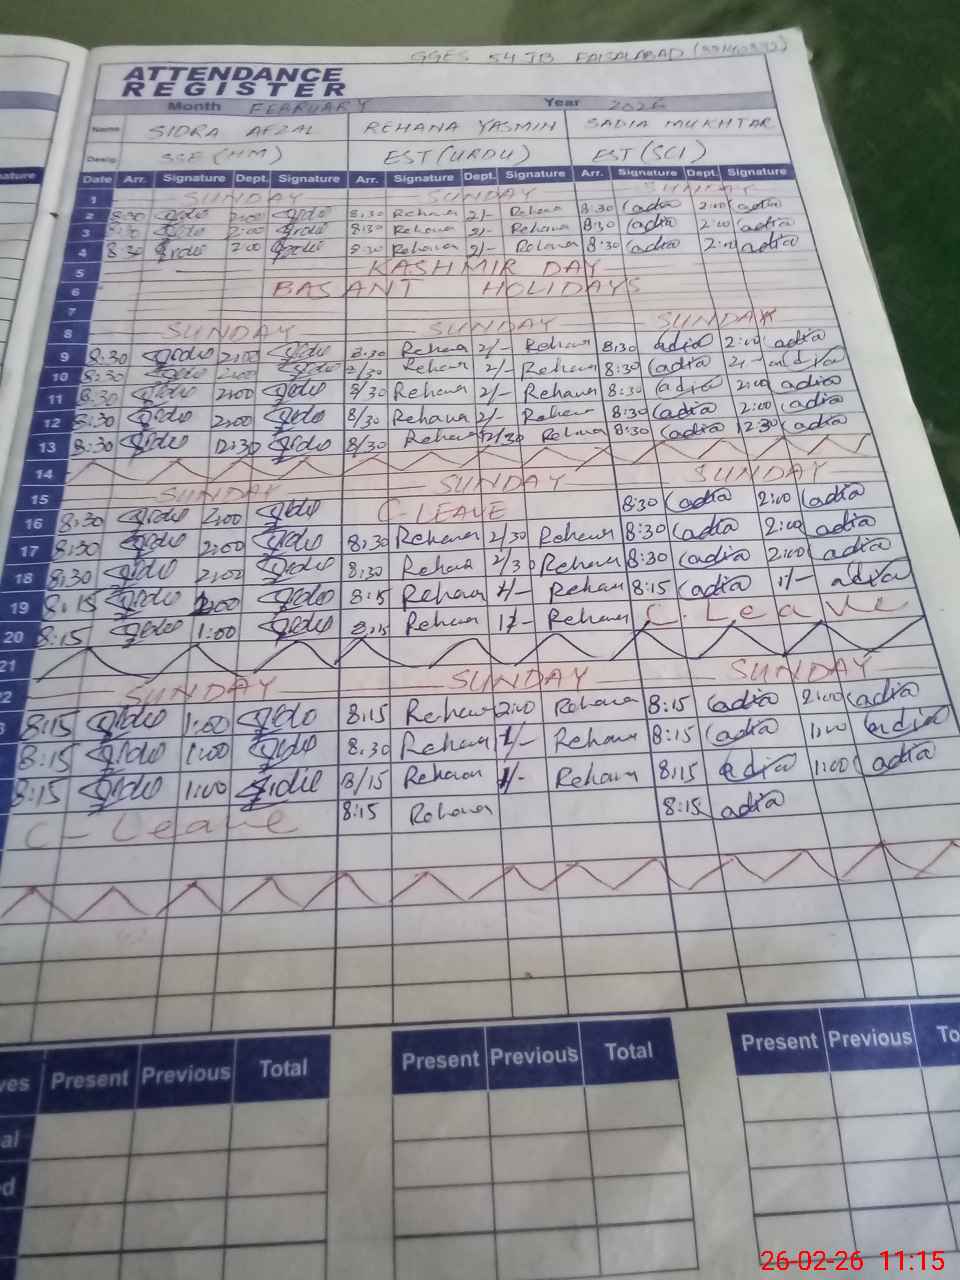 GGES 54 JB FAISALABAD
ATTENDANCE
REGISTER
Month FEBRUARY Year 2026
Name SIDRA AFZAL REHANA YASMIN SADIA MUKHTAR
Desig. SSE (HM) EST (URDU) EST (SCI)
Date Arr. Signature Dept. Signature Arr. Signature Dept. Signature Arr. Signature Dept. Signature
1 SUNDAY SUNDAY SUNDAY
2 8:30 2:00 8:30 Rehana 2/- Rehana 8:30 Sadia 2:00 Sadia
3 8:30 2:00 8:30 Rehana 2/- Rehana 8:30 Sadia 2:00 Sadia
4 8:30 2:00 8:30 Rehana 2/- Rehana 8:30 Sadia 2:00 Sadia
5 KASHMIR DAY
6 BASANT HOLIDAYS
7
8 SUNDAY SUNDAY SUNDAY
9 8:30 2:00 8:30 Rehana 2/- Rehana 8:30 Sadia 2:00 Sadia
10 8:30 2:00 8/30 Rehana 2/- Rehana 8:30 Sadia 2/- Sadia
11 8:30 2:00 8/30 Rehana 2/- Rehana 8:30 Sadia 2:00 Sadia
12 8:30 2:00 8/30 Rehana 2/- Rehana 8:30 Sadia 2:00 Sadia
13 8:30 12:30 8/30 Rehana 12/30 Rehana 8:30 Sadia 12:30 Sadia
14
15 SUNDAY SUNDAY SUNDAY
16 8:30 2:00 C-LEAVE 8:30 Sadia 2:00 Sadia
17 8:30 2:00 8:30 Rehana 2/30 Rehana 8:30 Sadia 2:00 Sadia
18 8:30 2:00 8:30 Rehana 2/30 Rehana 8:30 Sadia 2:00 Sadia
19 8:15 1:00 8:15 Rehana 1/- Rehana 8:15 Sadia 1/- Sadia
20 8:15 1:00 8:15 Rehana 1/- Rehana C. Leave
21
2 SUNDAY SUNDAY SUNDAY
3 8:15 1:00 8:15 Rehana 2:00 Rehana 8:15 Sadia 2:00 Sadia
8:15 1:00 8:30 Rehana 1/- Rehana 8:15 Sadia 1:00 Sadia
8:15 1:00 8/15 Rehana 1/- Rehana 8:15 Sadia 1:00 Sadia
C-Leave 8:15 Rehana 8:15 Sadia
ves Present Previous Total Present Previous Total Present Previous To
al
d
26-02-26 11:15